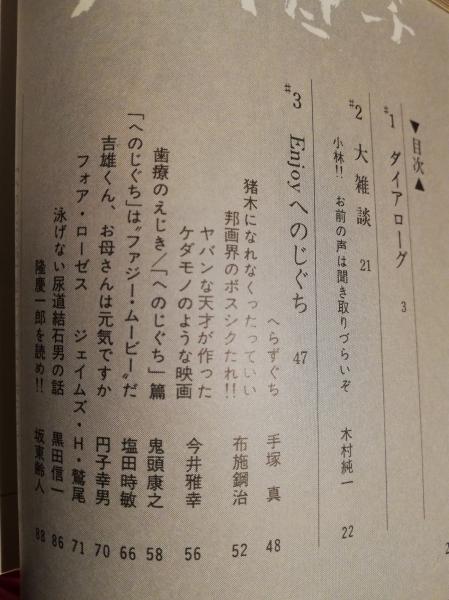 ▼目次▲
#1 ダイアローグ 3
#2 大雑談 21
小林!! お前の声は聞き取りづらいぞ 木村純一 22
#3 Enjoyへのじぐち 47
へらずぐち 手塚 真 48
猪木になれなくったっていい
邦画界のボスシクたれ!! 布施鋼治 52
ヤバンな天才が作った
ケダモノのような映画 今井雅幸 56
歯療のえじき/「へのじぐち」篇 鬼頭康之 58
「へのじぐち」は“ファジー・ムービー”だ 塩田時敏 66
吉雄くん、お母さんは元気ですか 円子幸男 70
フォア・ローゼス ジェイムズ・H・鷲尾 71
泳げない尿道結石男の話 黒田信一 86
隆慶一郎を読め!! 坂東齢人 88